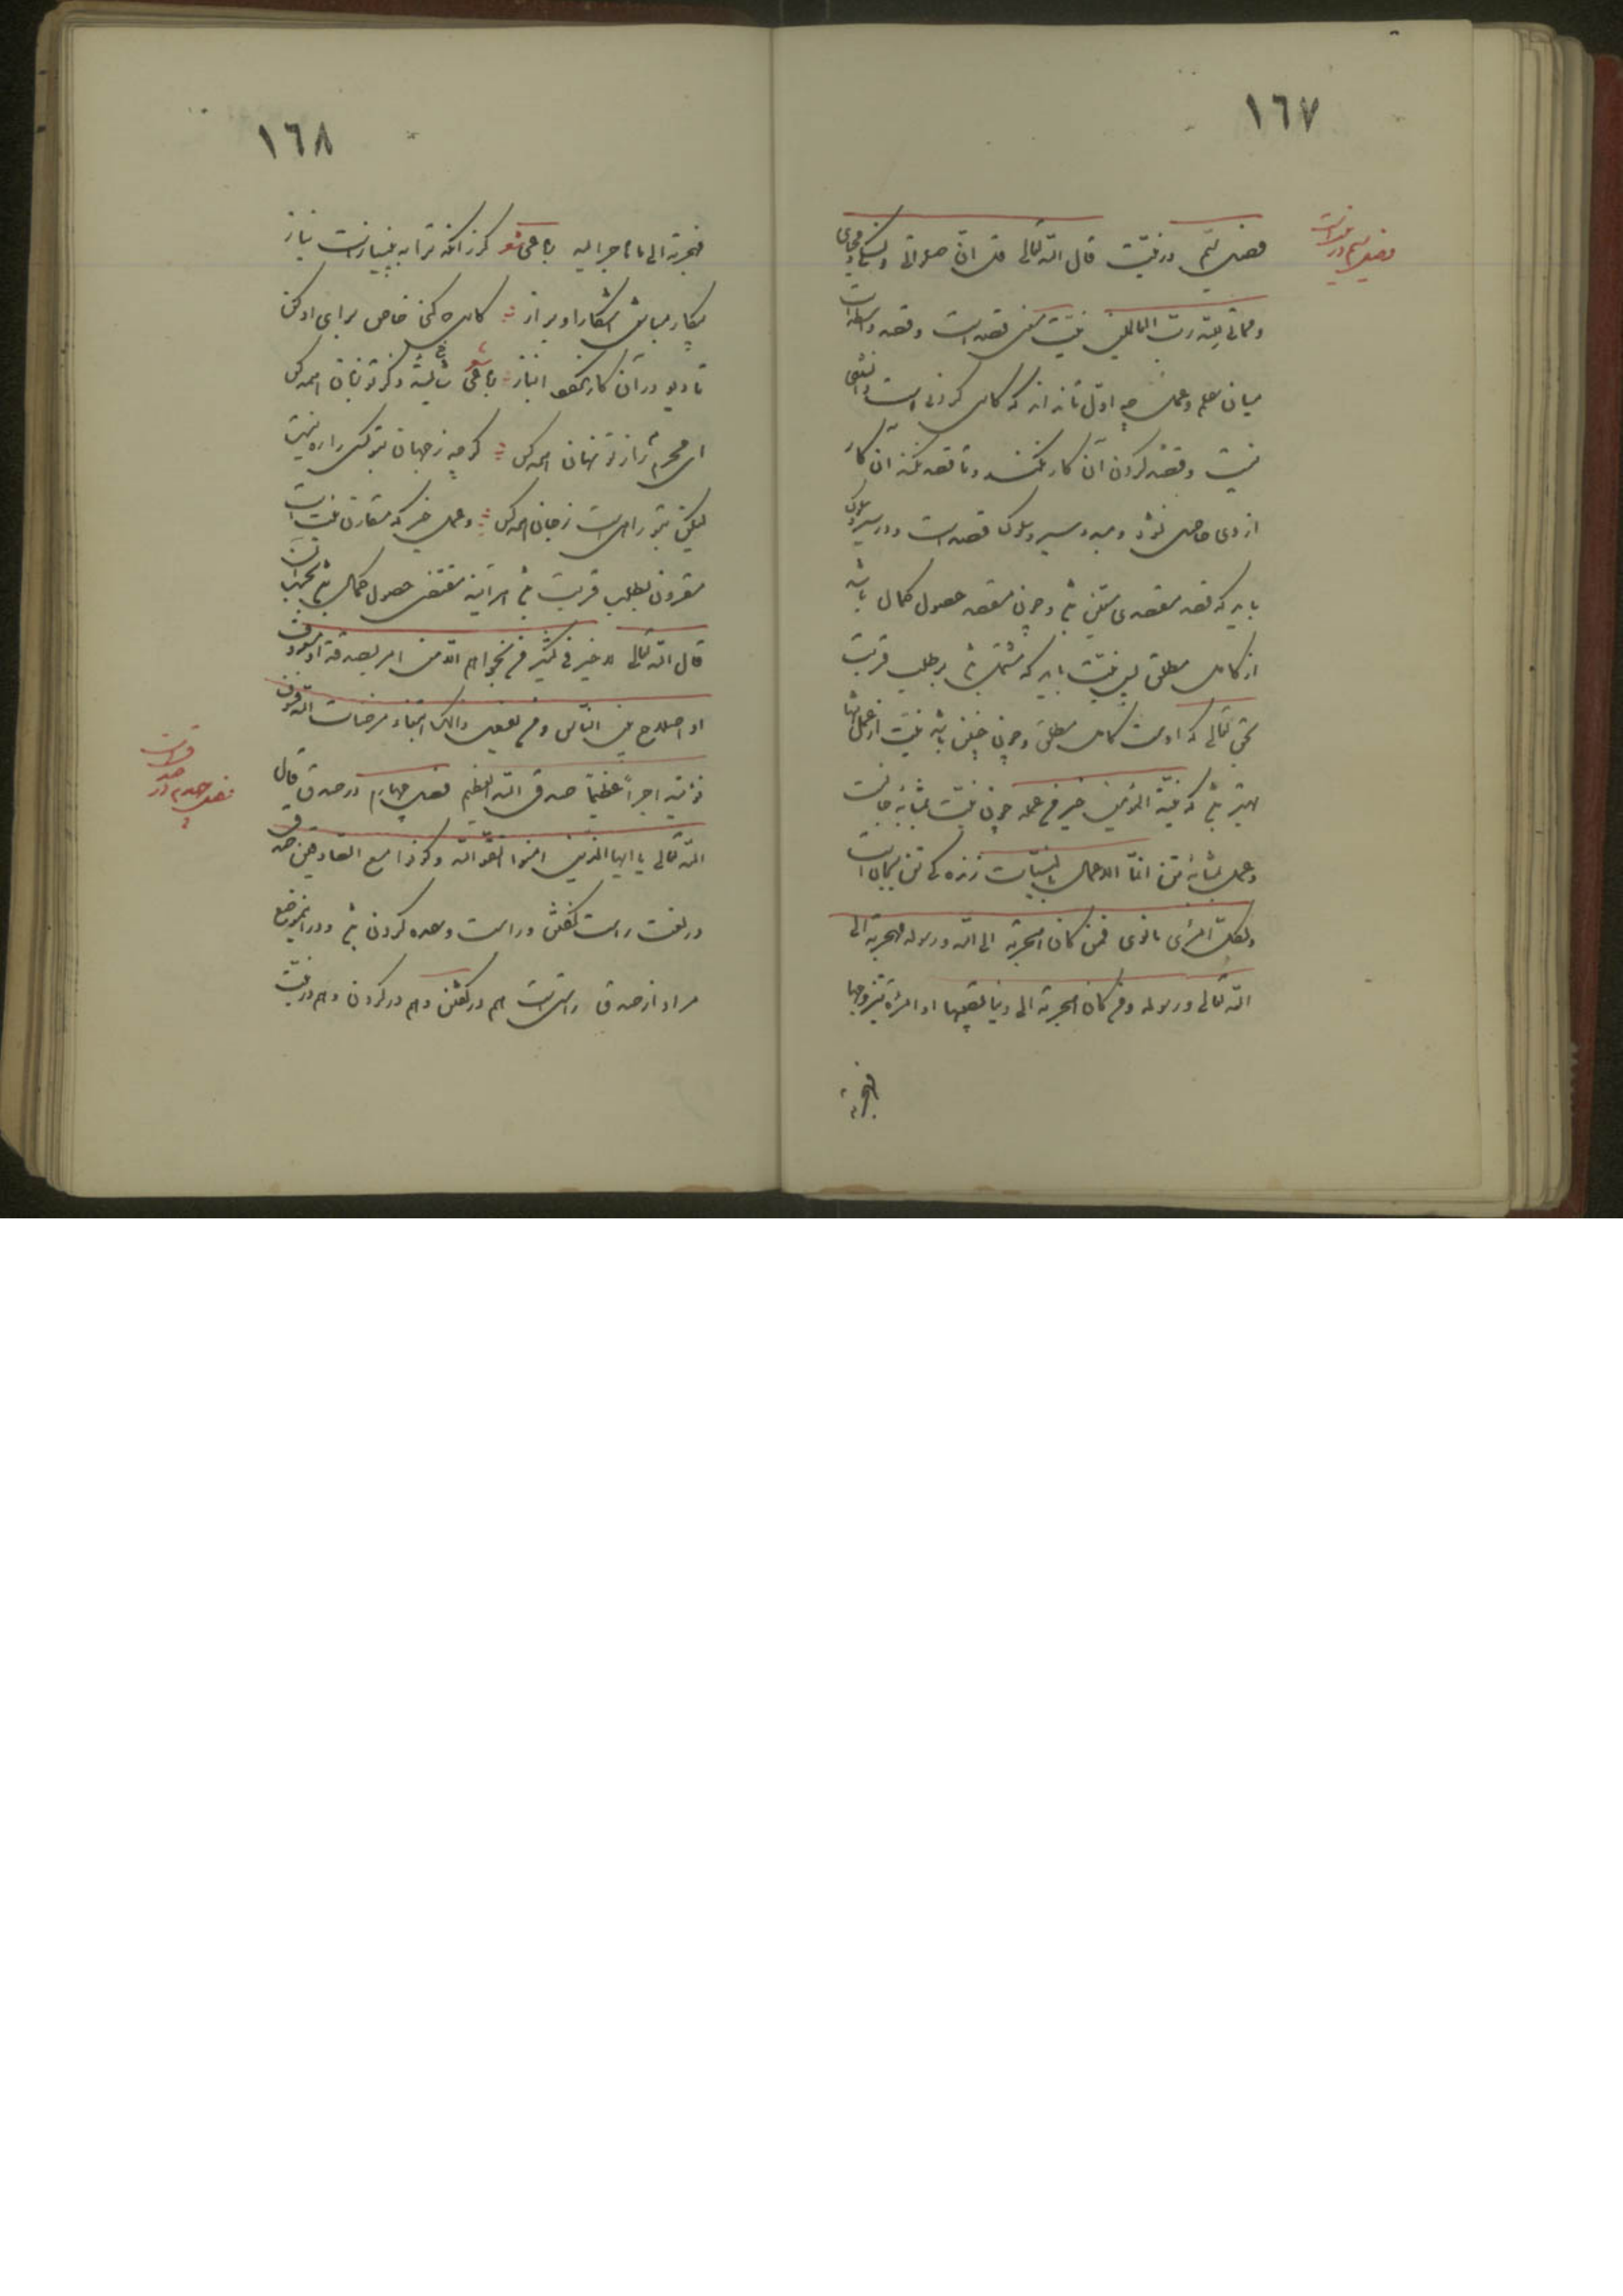 ١٦٧
فصل سیم در نیت قال الله تعالی قل ان صلوتی و نسکی و محیای
و مماتی لله رب العالمین نیت معنی قصد است و قصد واسطه است
میان علم و عمل چه اول تا نداند که کاری کردنی است
نیت و قصد کردن آن کار نکند و تا قصد نکند آن کار
از وی حاصل نشود و مبدء سیر و سلوک قصد است و در سیر و سلوک
باید که قصد مقصدی معین بود و چون مقصد حصول کمال باشد
از کامل مطلق پس نیت باید که مشتمل باشد بر طلب قربت
بحق تعالی که اوست کامل مطلق و چون چنین باشد نیت از عمل تنها
بهتر باشد که نیة المؤمن خیر من عمله چون نیت بمثابه جانست
و عمل بمثابه تن انما الاعمال بالنیات زندگی تن بجان است
و لکل امرئ ما نوی فمن کان هجرته الی الله و رسوله فهجرته الی
الله تعالی و رسوله و من کان هجرته الی دنیا یصیبها او امرأة یتزوجها
١٦٨
فهجرته الی ما هاجر الیه رباعی شعر گر زانکه ترا به بی نیاز است نیاز
کاری که کنی خاص برای او کن
تا دیو در آن کار نگردد انباز رباعی
ای محرم راز تو نهان همه کس گرچه ز جهان بتو کسی را ره نیست
لیکن بتو راهی است ز جان همه کس و عمل خیر که مقارن نیت است
مقرون بطلب قربت باشد هر آینه مقتضی حصول کمال باشد بحسب آن
قال الله تعالی لا خیر فی کثیر من نجواهم الا من امر بصدقة او معروف
او اصلاح بین الناس و من یفعل ذالک ابتغاء مرضات الله فسوف
نؤتیه اجراً عظیماً صدق الله العظیم فصل چهارم در صدق قال
الله تعالی یا ایها الذین امنوا اتقوا الله و کونوا مع الصادقین صدق
در لغت راست گفتن و راست وعده کردن باشد و در این موضع
مراد از صدق راستی است هم در گفتن و هم در کردن و هم در نیت